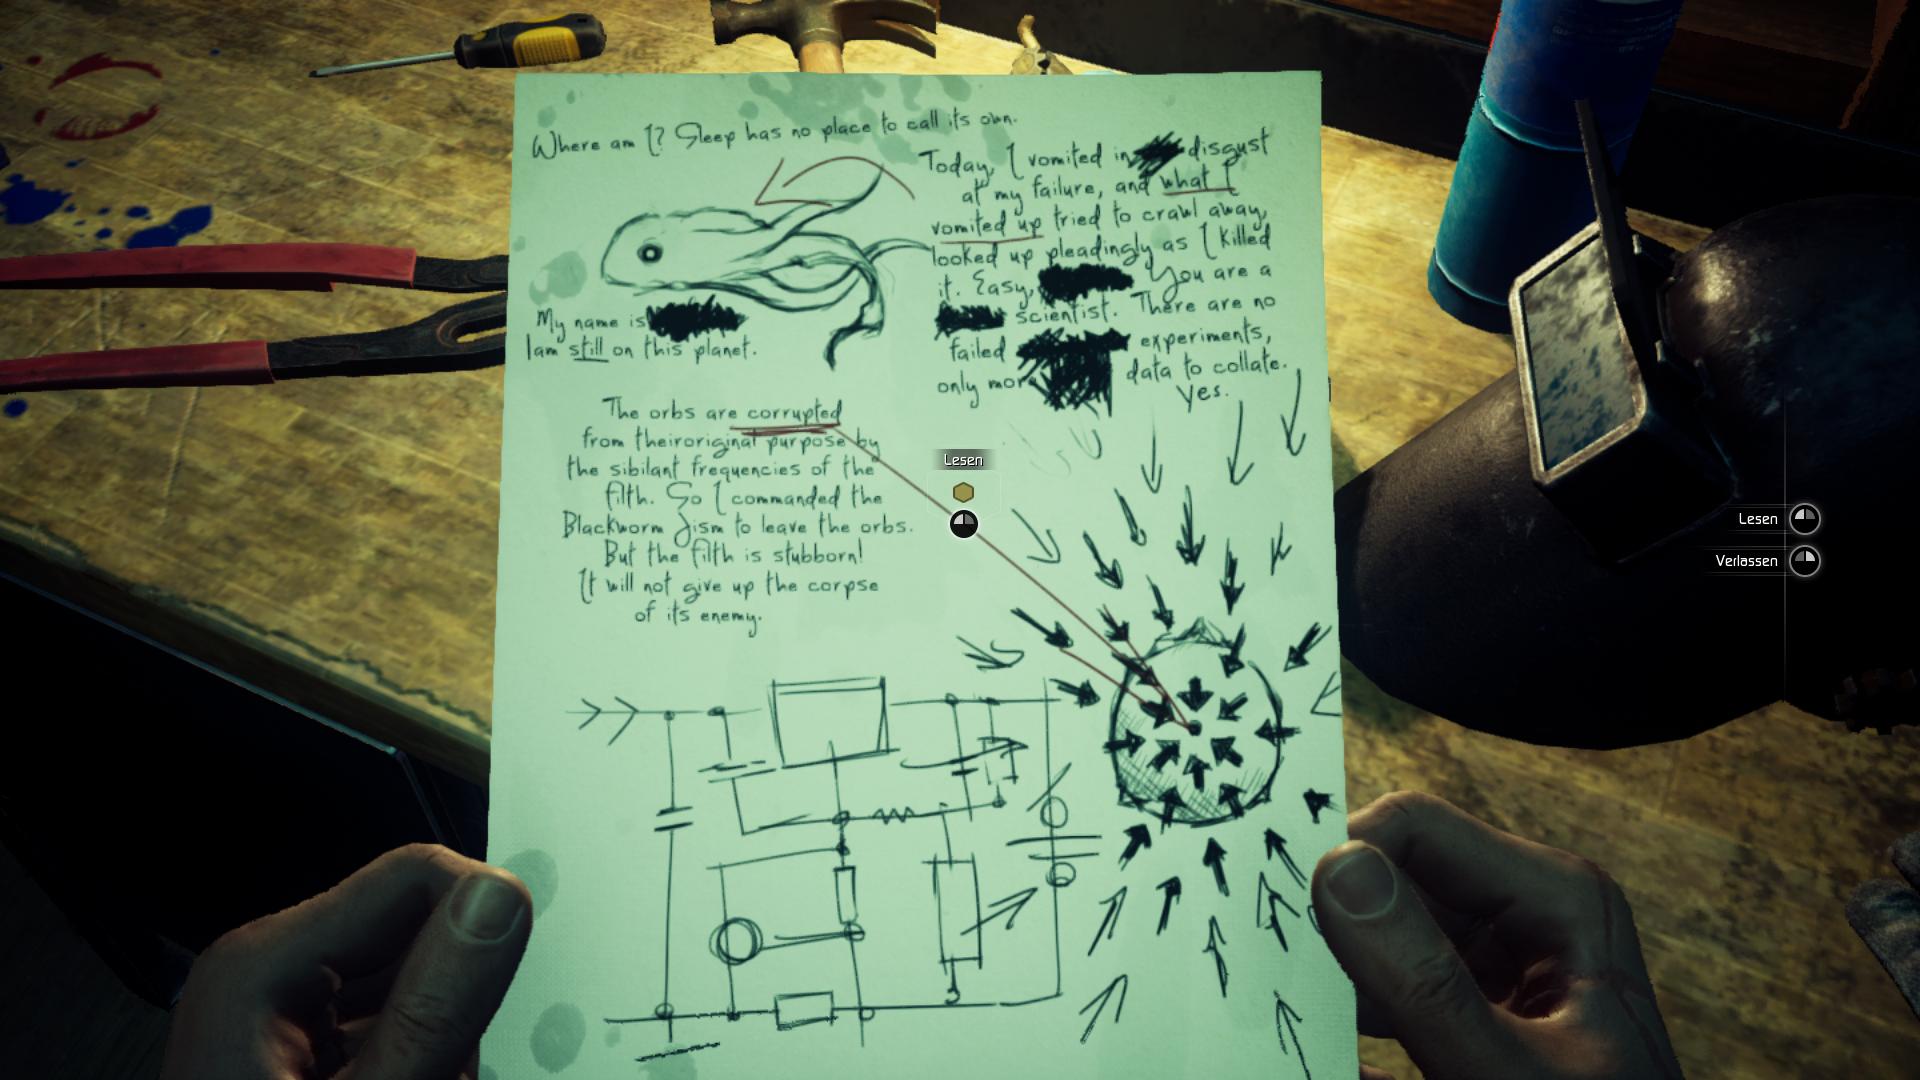 Where am I? Sleep has no place to call its own.
Today, I vomited in disgust
at my failure, and what I
vomited up tried to crawl away,
looked up pleadingly as I killed
it. Easy, You are a
scientist. There are no
failed experiments,
only mor data to collate.
Yes.
My name is
I am still on this planet.
The orbs are corrupted
from theiroriginal purpose by
the sibilant frequencies of the
filth. So I commanded the
Blackworm Jism to leave the orbs.
But the filth is stubborn!
It will not give up the corpse
of its enemy.
Lesen
Lesen
Verlassen